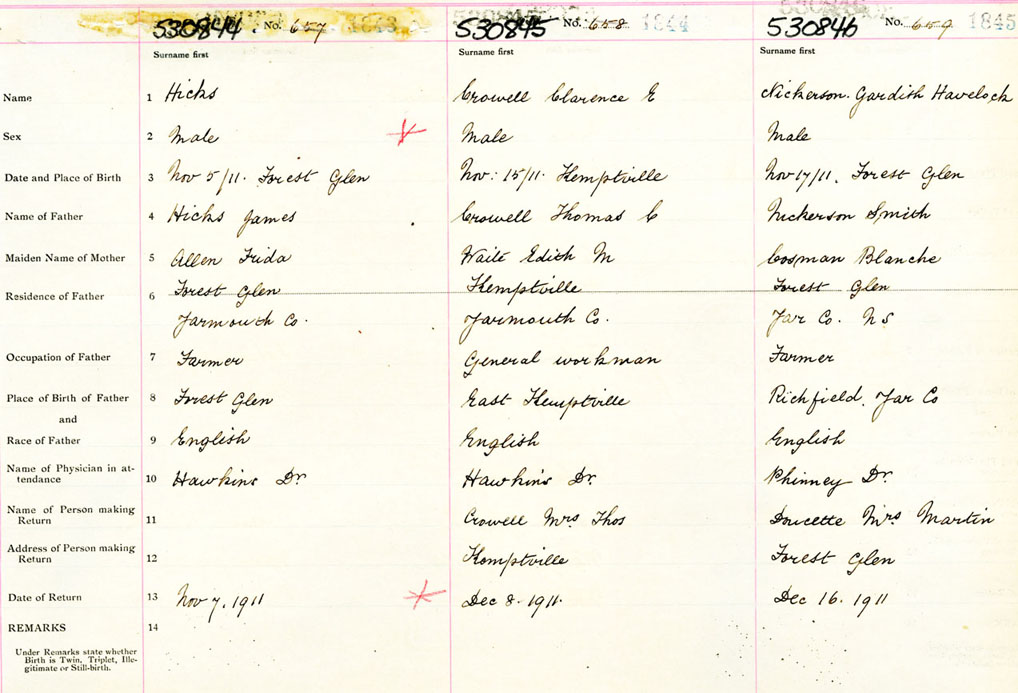 530844. No. 657 1843 530845 No. 658 1844 530846 No. 659 1845
Surname first Surname first Surname first
Name 1 Hicks Crowell Clarence E Nickerson. Gardith Havelock
Sex 2 Male Male Male
Date and Place of Birth 3 Nov 5/11. Forest Glen Nov: 15/11. Kemptville Nov 17/11. Forest Glen
Name of Father 4 Hicks James Crowell Thomas C Nickerson Smith
Maiden Name of Mother 5 Allen Frida Waite Edith M Cosman Blanche
Residence of Father 6 Forest Glen Kemptville Forest Glen
Yarmouth Co. Yarmouth Co. Yar Co. NS
Occupation of Father 7 Farmer General workman Farmer
Place of Birth of Father 8 Forest Glen East Kemptville Richfield, Yar Co
and
Race of Father 9 English English English
Name of Physician in at-
tendance 10 Hawkins Dr Hawkins Dr. Phinney Dr.
Name of Person making
Return 11 Crowell Mrs Thos Doucette Mrs Martin
Address of Person making
Return 12 Kemptville Forest Glen
Date of Return 13 Nov 7, 1911 Dec 8. 1911. Dec 16. 1911
REMARKS 14
Under Remarks state whether
Birth is Twin, Triplet, Ille-
gitimate or Still-birth.